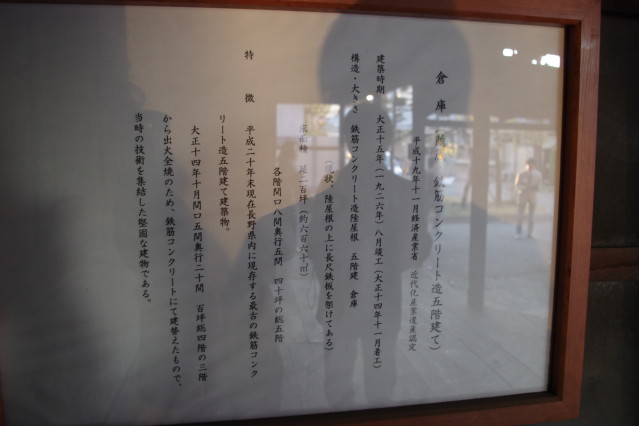 倉庫 鉄筋コンクリート造五階建て)
平成十九年十一月経済産業省 近代化産業遺産認定
建築時期 大正十五年(一九二六年)八月竣工(大正十四年十一月着工)
構造・大きさ 鉄筋コンクリート造陸屋根 五階建 倉庫
(現状、陸屋根の上に長尺鉄板を架けてある)
延二百坪(約六百六十㎡)
各階間口八間奥行五間 四十坪の総五階
特徴 平成二十年末現在長野県内に現存する最古の鉄筋コンク
リート造五階建て建築物。
大正十四年十月間口五間奥行二十間 百坪総四階の三階
から出火全焼のため、鉄筋コンクリートにて建替えたもので、
当時の技術を集結した堅固な建物である。